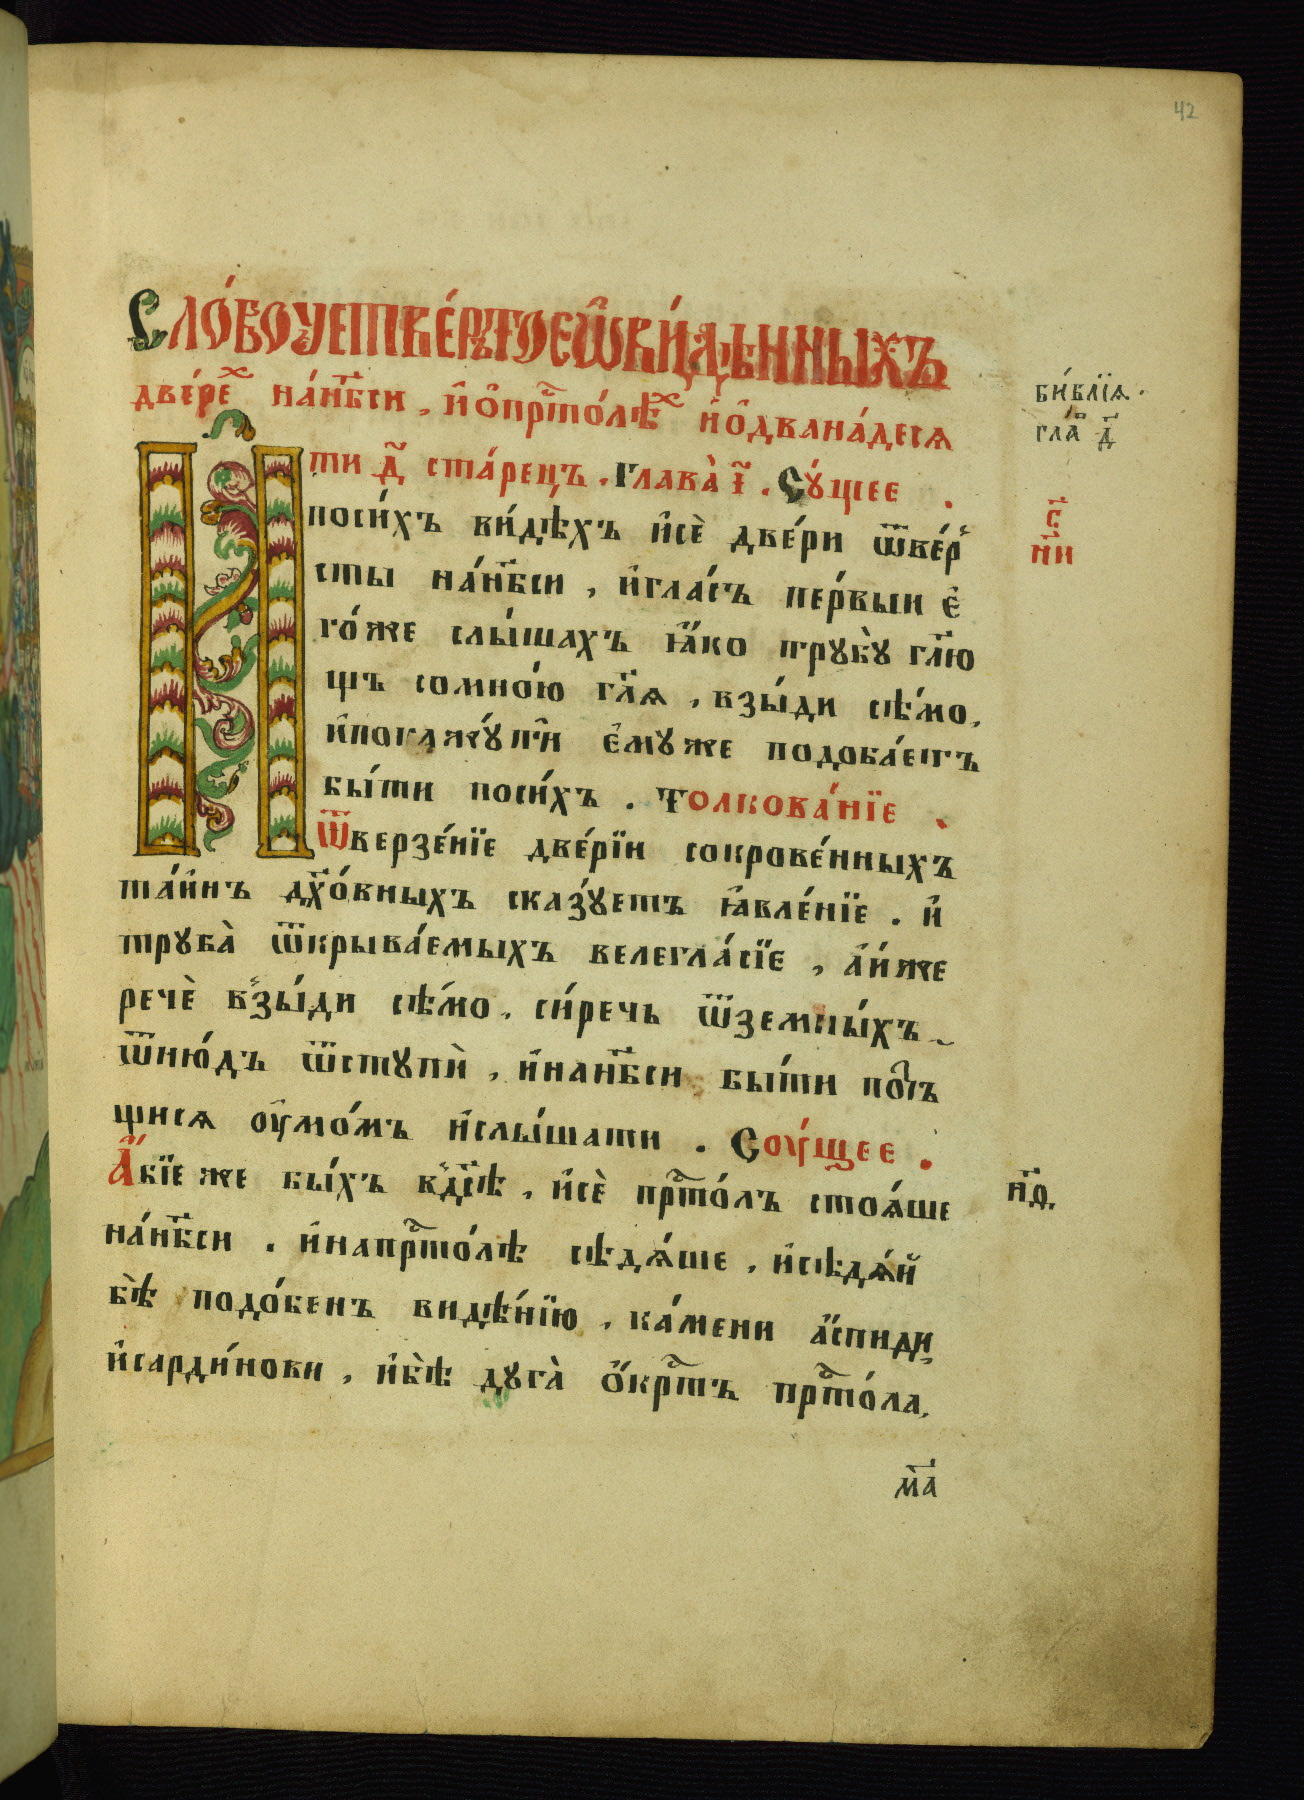 42
Сло́во четве́ртое ѡ҆ ви́дѣнныхъ
две́реⷯ на́нб҃си, и҆ ѻ҆прⷭ҇то́лѣⷯ и҆ ѻ҆двана́деся
ти д҃ ста́рецъ. глава̀ і҃. Су́щее.
И посиⷯхъ ви́дѣхъ и҆сѐ две́ри ѿве́р
сты на́нб҃си, и҆гла́съ пе́рвыи є҆
го́же слы́шахъ ꙗ҆́ко трубꙋ̀ гл҃ю
щъ сомно́ю гл҃я, взы́ди сѣ́мо,
и҆покажꙋ́ ти є҆мꙋже подоба́етъ
бы́ти поси́хъ. Толкова́нїе.
Ѿверзе́нїе две́рїи сокрове́нныхъ
та́инъ дх҃о́вныхъ сказꙋ́етъ ꙗ҆вле́нїе. и҆
трꙋба̀ ѿкрыва́емыхъ велегла́сїе, а҆и́же
речѐ взы́ди сѣ́мо, си́речь ѿземны́хъ
ѿню́дъ ѿстꙋпѝ, и҆нанб҃си бы́ти поⷣт
щися оу҆мо́мъ и҆слы́шати. Соу́щее.
А҆́бїе же бы́хъ вдс҃ѣ, и҆сѐ прⷭ҇то́лъ стоя́ше
на́нб҃си. и҆напрⷭ҇то́лѣ сѣдя́ше, и҆сѣдя́й
бѣ̀ подо́бенъ видѣ́нїю, ка́мени а҆́спиди
и҆сарди́нови, и҆бѣ̀ дꙋга̀ ѻ҆́крⷭ҇тъ прⷭ҇то́ла,
би́блїя.
глаⷡ҇ д҃
с҃
н҃и
н҃ѳ.
м҃а